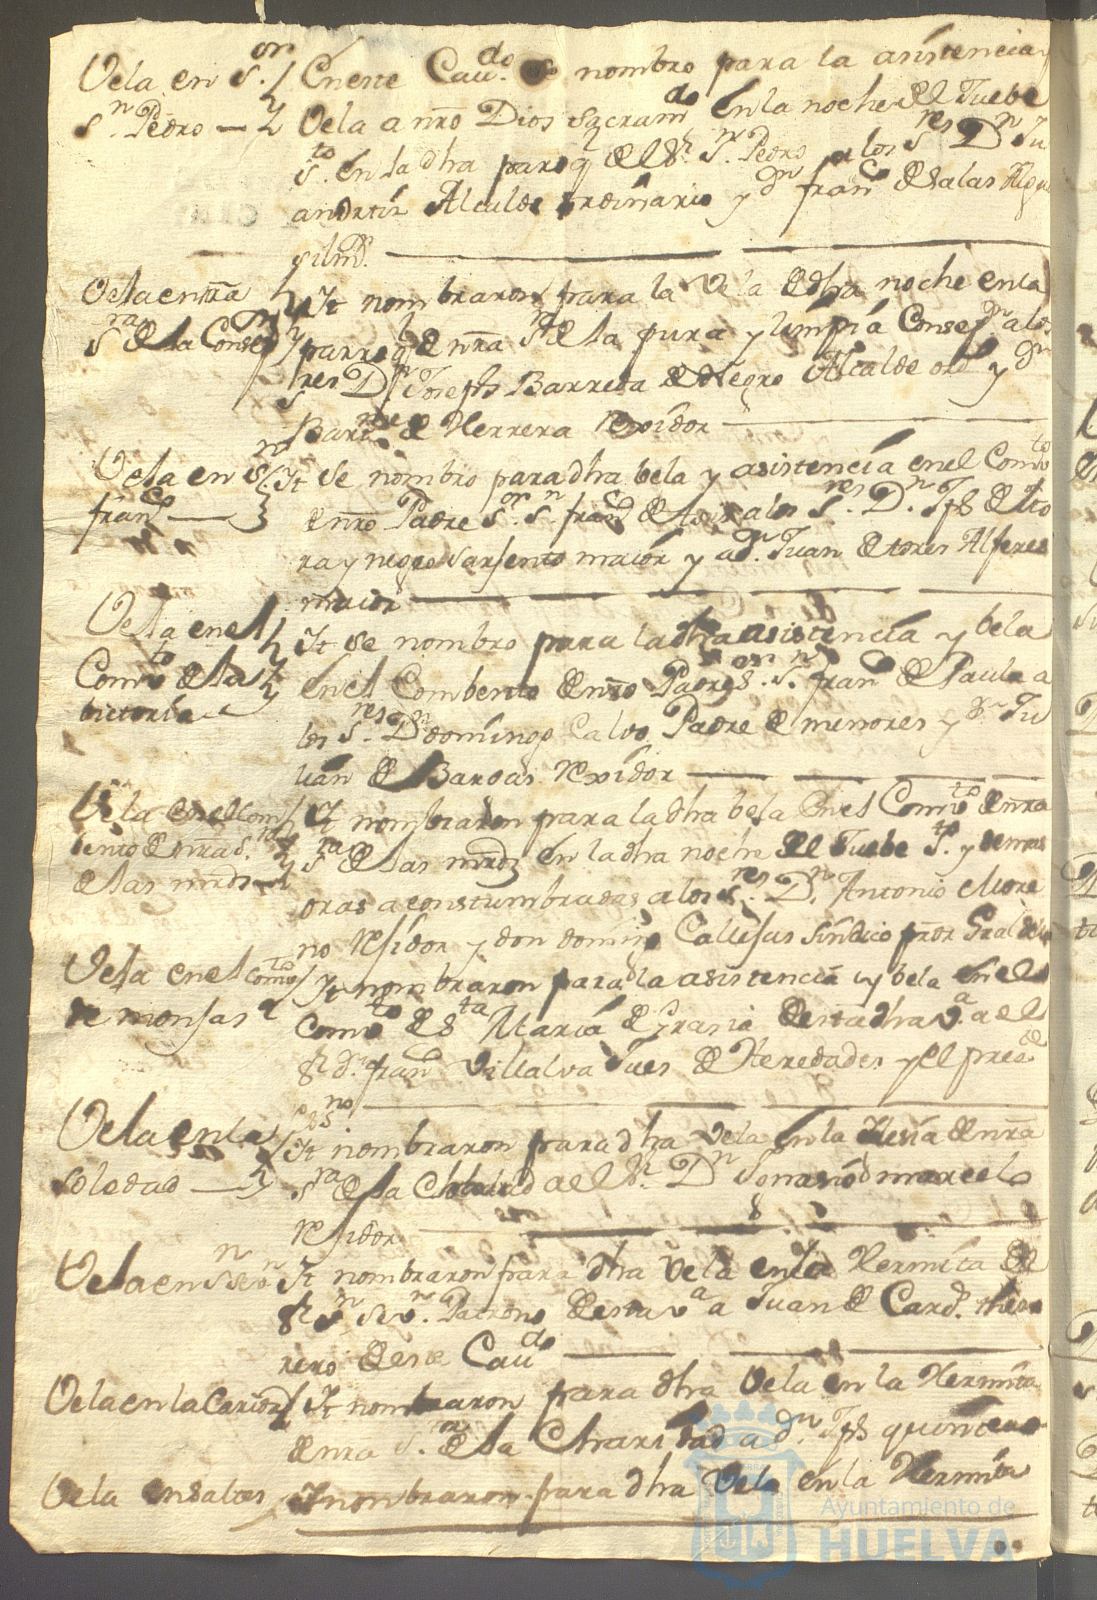 Vela en S.or
S.n Pedro
En este Cau.do se nombro para la asistencia y
Vela a nro Dios Sacram.do en la noche del Juebe
S.to en la dha parroq del S.r S.n Pedro a los S.res D.n Ju
an Alcalde ordinario y D.n fran.co de Salas Algua
silm.r
Vela en nra
S.ra de la Consep.n
It nombraron para la Vela de dha noche en la
parroq de nra S.ra de la pura y limpia Consep.n a los
S.res D.n Joseph Barreda Alcalde ord.o y D.n
Bar.me de Herrera Rexidor
Vela en S.n
fran.co
It se nombro para dha bela y asistencia en el Comb.to
de nro Padre S.or S.n fran.co de Asis a los S.res D.n Jph de
ra y negro sarjento maior y a D.n Juan de tores Alferes
maior
Vela en el
Comb.to de la
bictoria
It se nombro para la dha asistencia y bela
en el Combento de nro Padre S.or S.n fran.co de Paula a
los S.res D.n domingo Calvo Padre de menores y D.n Ju
lian de Bargas Rexidor
Vela en el Com
bento de nra S.ra
de las mrds
It nombraron para la dha bela en el Comb.to de nra
S.ra de las mrds en la dha noche del Juebe S.to y demas
oras acostumbradas a los S.res D.n Antonio More
no Rejidor y don domingo Sindico pror Gral
Vela en el Comb.to
de monjas
It nombraron para la asistencia y bela en el
Comb.to de S.ta Maria de Grasia de esta dha v.a a el
S.r D.n fran.co Villalva Jues de Heredades y el pres.te
es.no
Vela en la
Soledad
It nombraron para dha Vela en la Iglesia de nra
S.ra de la Soledad a el S.r D.n marcelo
Rejidor
Vela en S.n Seb.n
It nombraron para dha Vela en la Hermita de
S.r S.n Seb.n Patrono de esta v.a a Juan de Card.s theso
rero de este Cau.do
Vela en la Caridad
It nombraron para dha Vela en la Hermita
de nra S.ra de la Charidad a D.n Jph quintero
Vela en Saltes
It nombraron para dha Vela en la Hermita
Ayuntamiento de
HUELVA